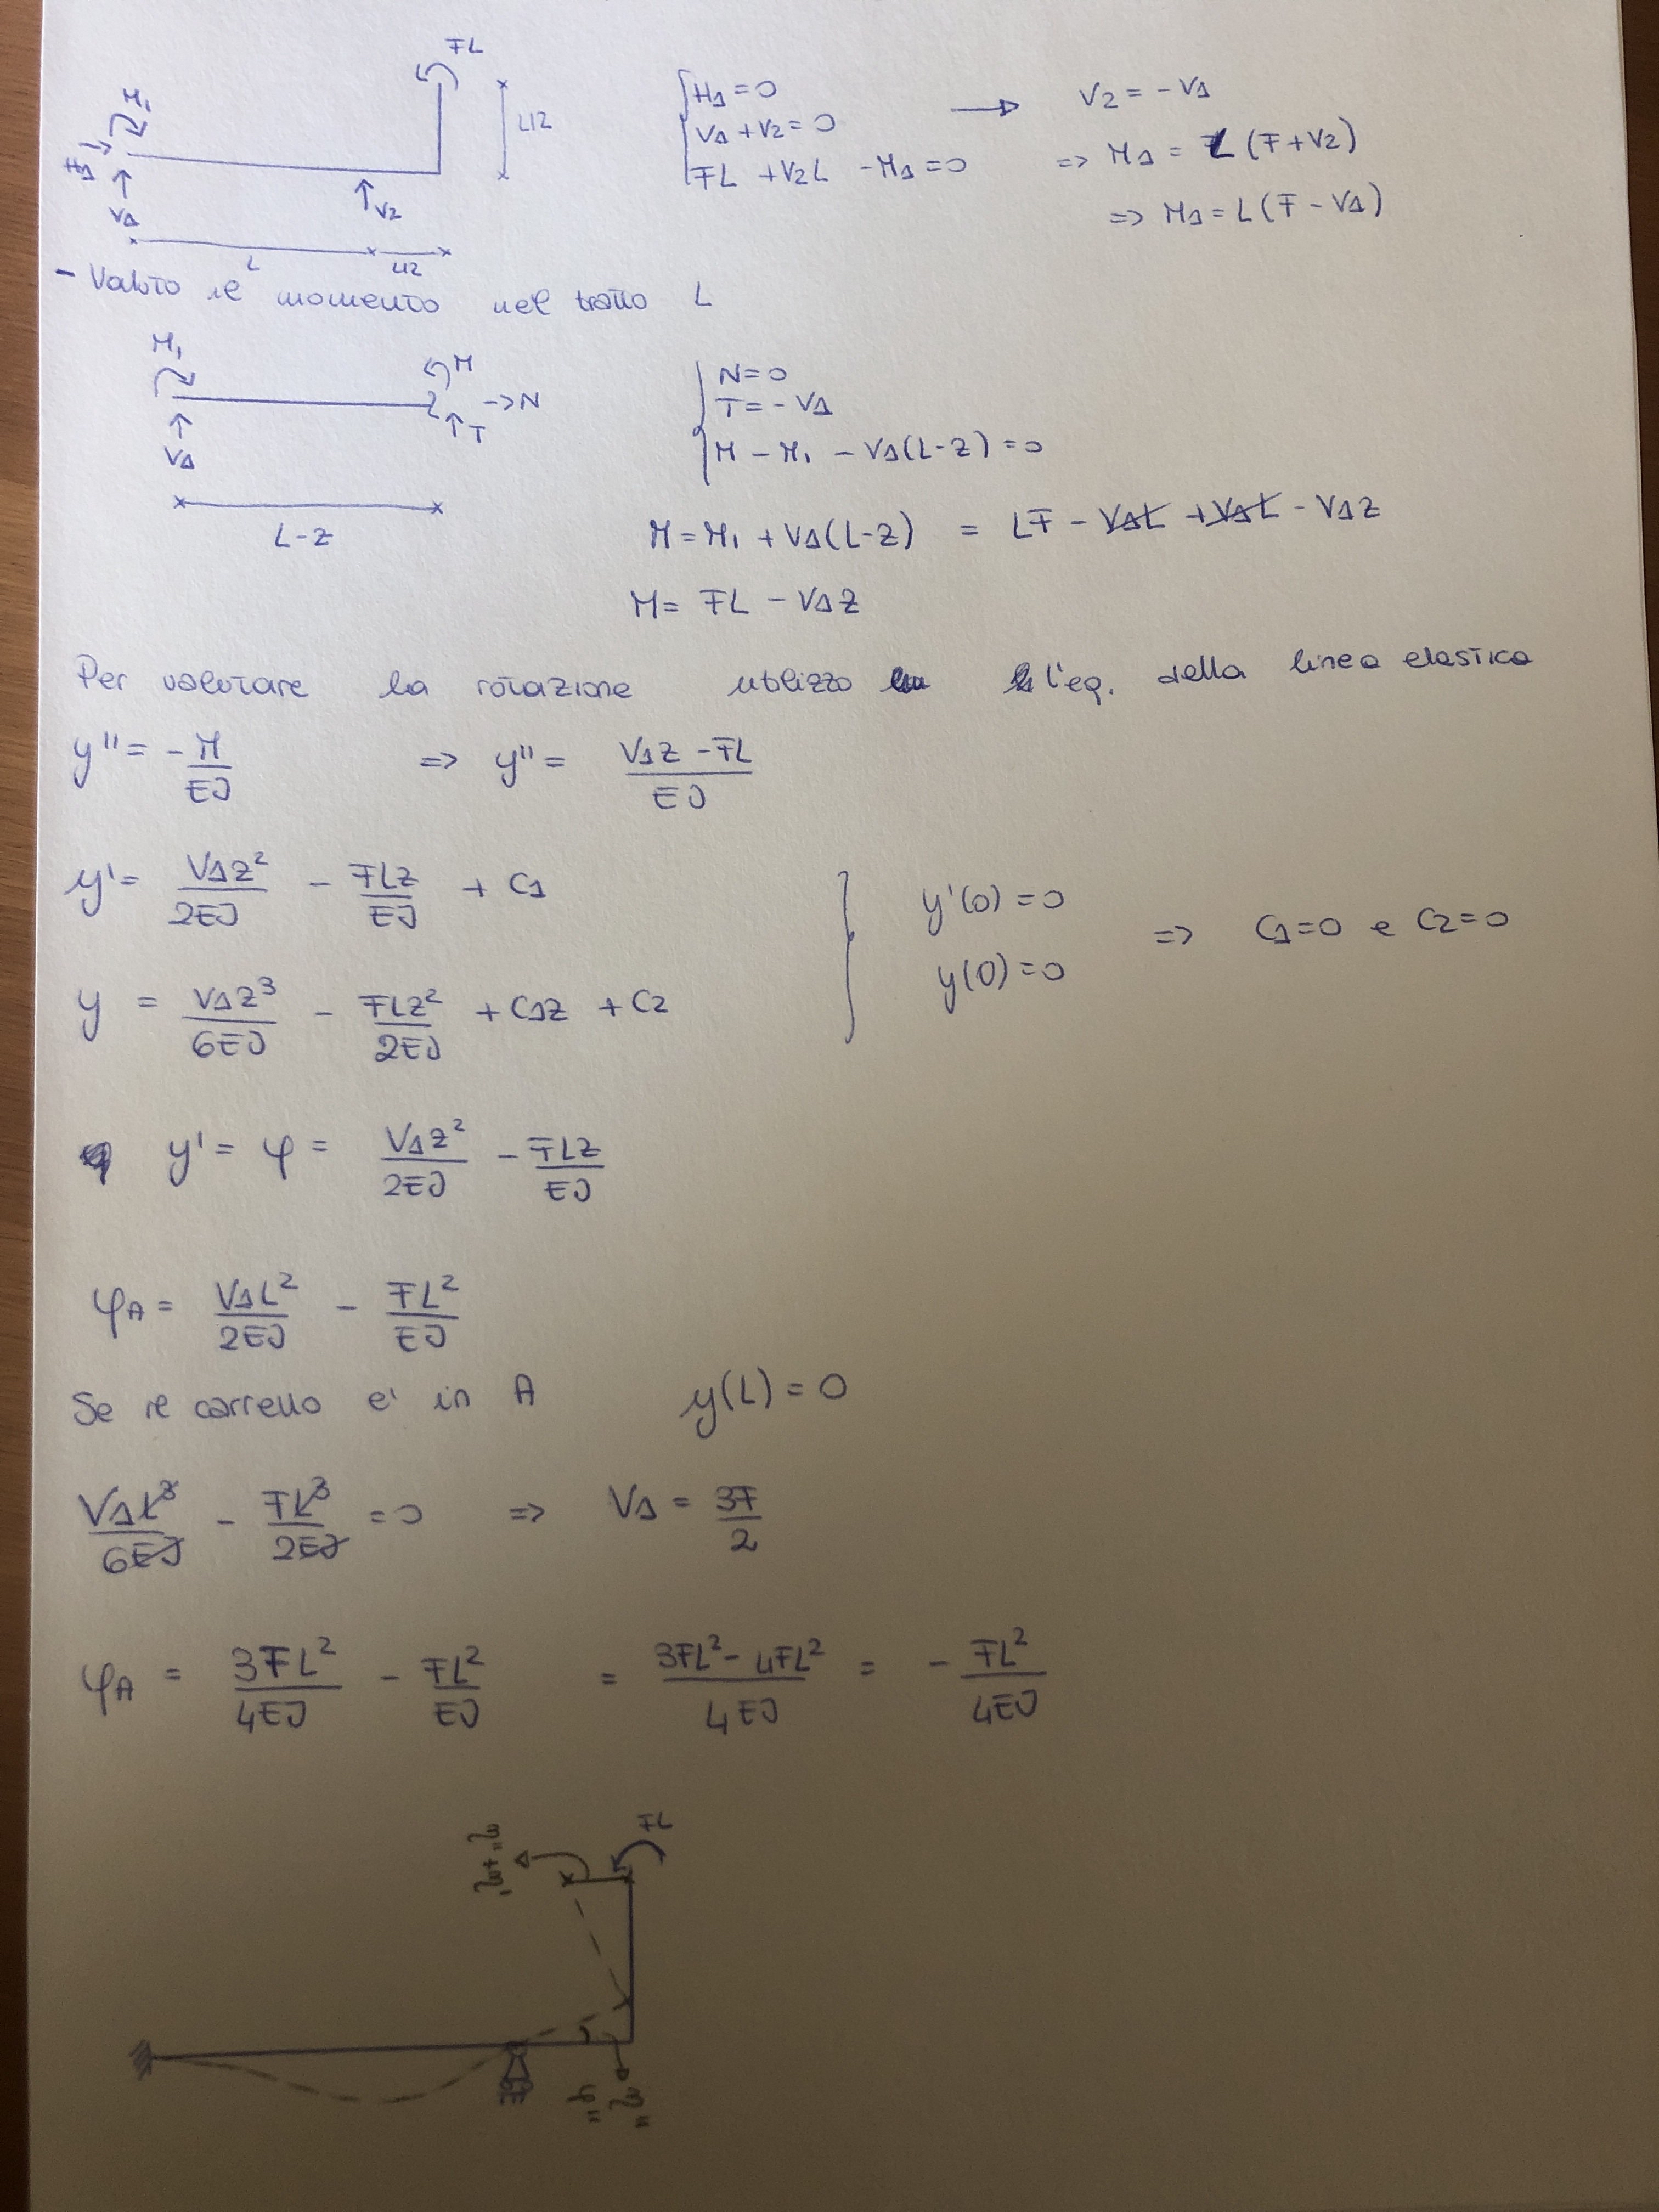 FL
M₁
H1
V1
V2
L/2
L
L/2
H1 = 0
V1 + V2 = 0
FL + V2L - M1 = 0
→ V2 = - V1
=> M1 = L (F + V2)
=> M1 = L (F - V1)
- Valuto il momento nel tratto L
M₁
V1
M
→ N
T
L-z
N = 0
T = - V1
M - M₁ - V1(L-z) = 0
M = M₁ + V1(L-z) = LF - V1L + V1L - V1z
M = FL - V1z
Per valutare la rotazione utilizzo l'eq. della linea elastica
y'' = - M/EJ => y'' = (V1z - FL)/EJ
y' = V1z²/2EJ - FLz/EJ + C1
y = V1z³/6EJ - FLz²/2EJ + C1z + C2
y'(0) = 0
y(0) = 0
=> C1=0 e C2=0
y' = φ = V1z²/2EJ - FLz/EJ
φA = V1L²/2EJ - FL²/EJ
Se il carrello e' in A y(L) = 0
V1L³/6EJ - FL³/2EJ = 0 => V1 = 3F/2
φA = 3FL²/4EJ - FL²/EJ = (3FL² - 4FL²)/4EJ = - FL²/4EJ
FL